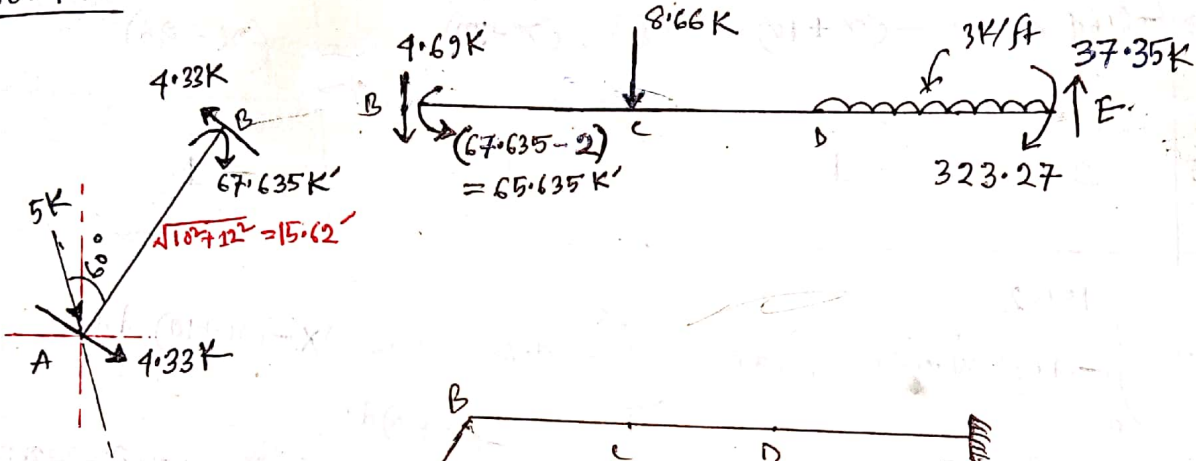 4.33K
B
67.635K'
5K
60°
√10²+12² =15.62'
A
4.33K
4.69K
8.66K
3K/ft
37.35K
B
C
D
E.
(67.635-2)
= 65.635 K'
323.27
B
C
D